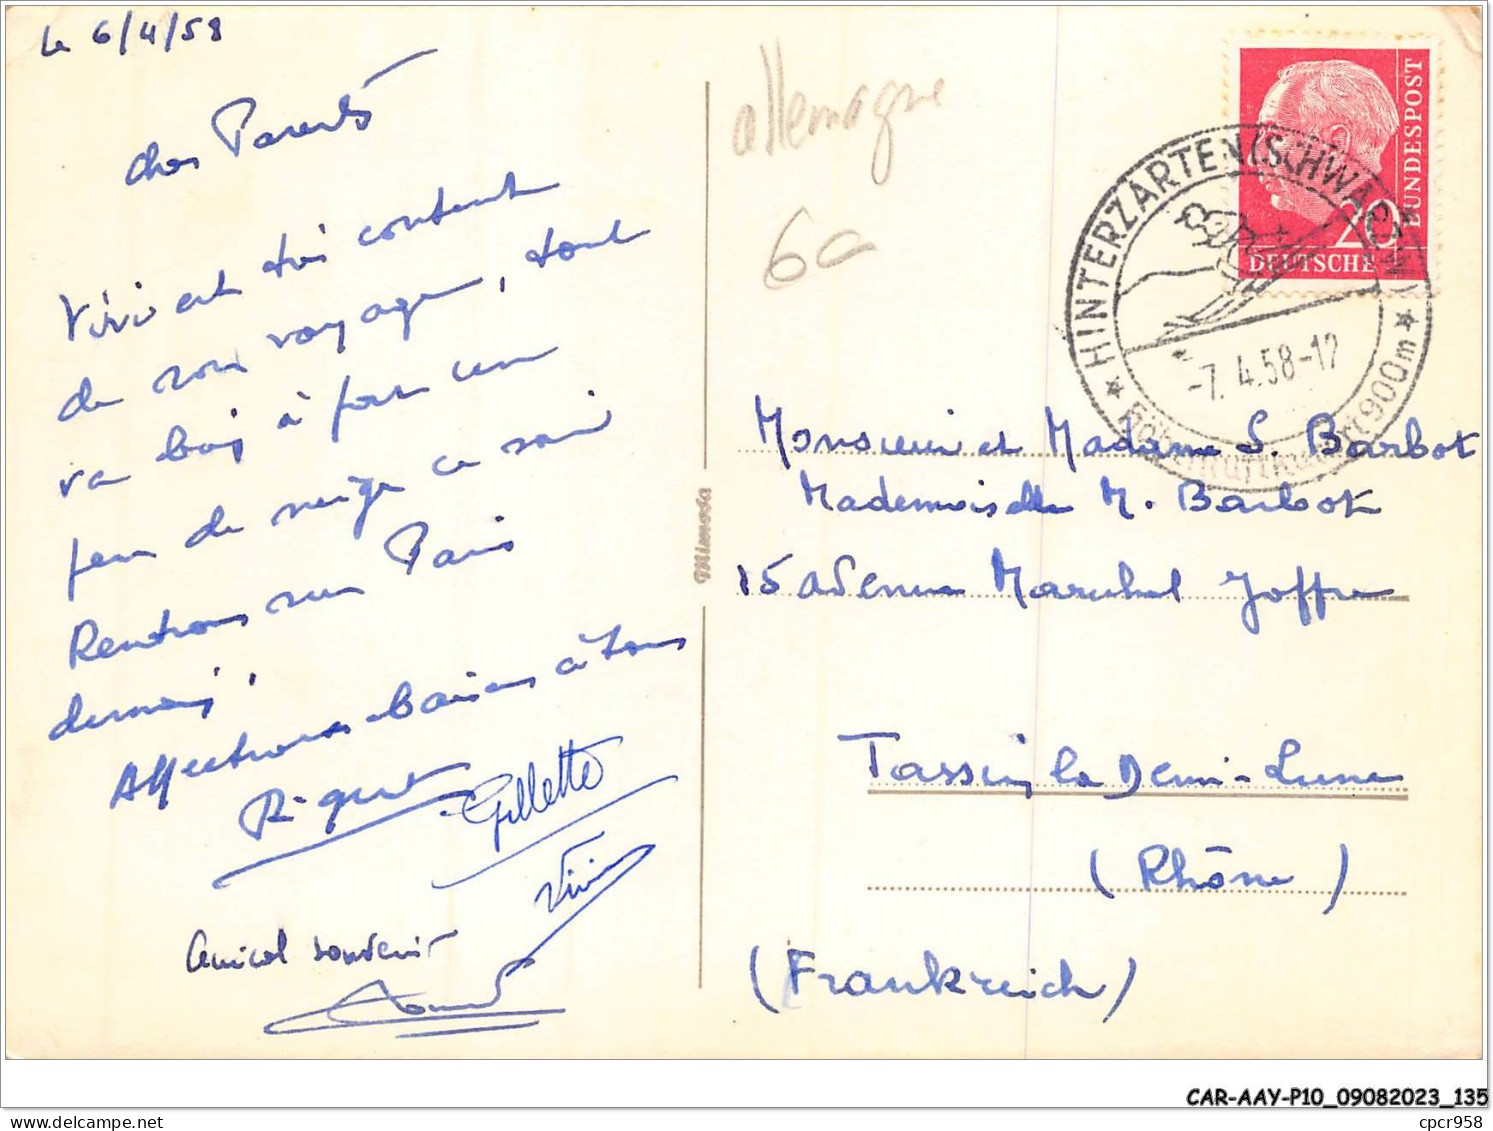 le 6/4/58
chers Parents
Vivi est très content
de son voyage, tout
va bien à part un
peu de neige ce soir
Rentrons sur Paris
demain.
Affectueux baisers à tous
Gillette
Vivi
Amical souvenir
allemagne
60
Mimosa
DEUTSCHE
BUNDESPOST
20
HINTERZARTEN (SCHWARZW)
-7.4.58-12
Höhenluftkurort (900m)
Monsieur et Madame S. Barbot
Mademoiselle M. Barbot
15 avenue Maréchal Joffre
Tassin la Demi-Lune
(Rhône)
(Frankreich)
CAR-AAY-P10_09082023_135
cpcr958